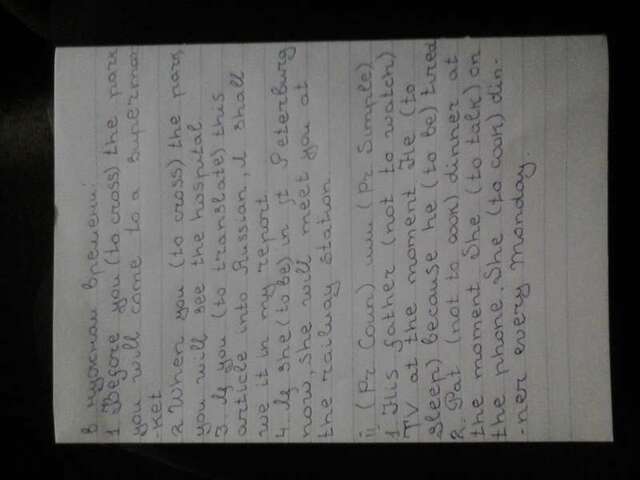 в нужном времени:
1 Before you (to cross) the park
you will come to a supermar
-ket
2 When you (to cross) the park,
you will see the hospital.
3. If you (to translate) this
article into Russian, I shall
use it in my report
4. If she (to be) in St Peterburg
now, she will meet you at
the railway station.
ii (Pr Coun) или (Pr Simple)
1. His father (not to watch)
TV at the moment He (to
sleep) because he (to be) tired
2. Pat (not to cook) dinner at
the moment. She (to talk) on
the phone. She (to cook) din-
-ner every Monday.